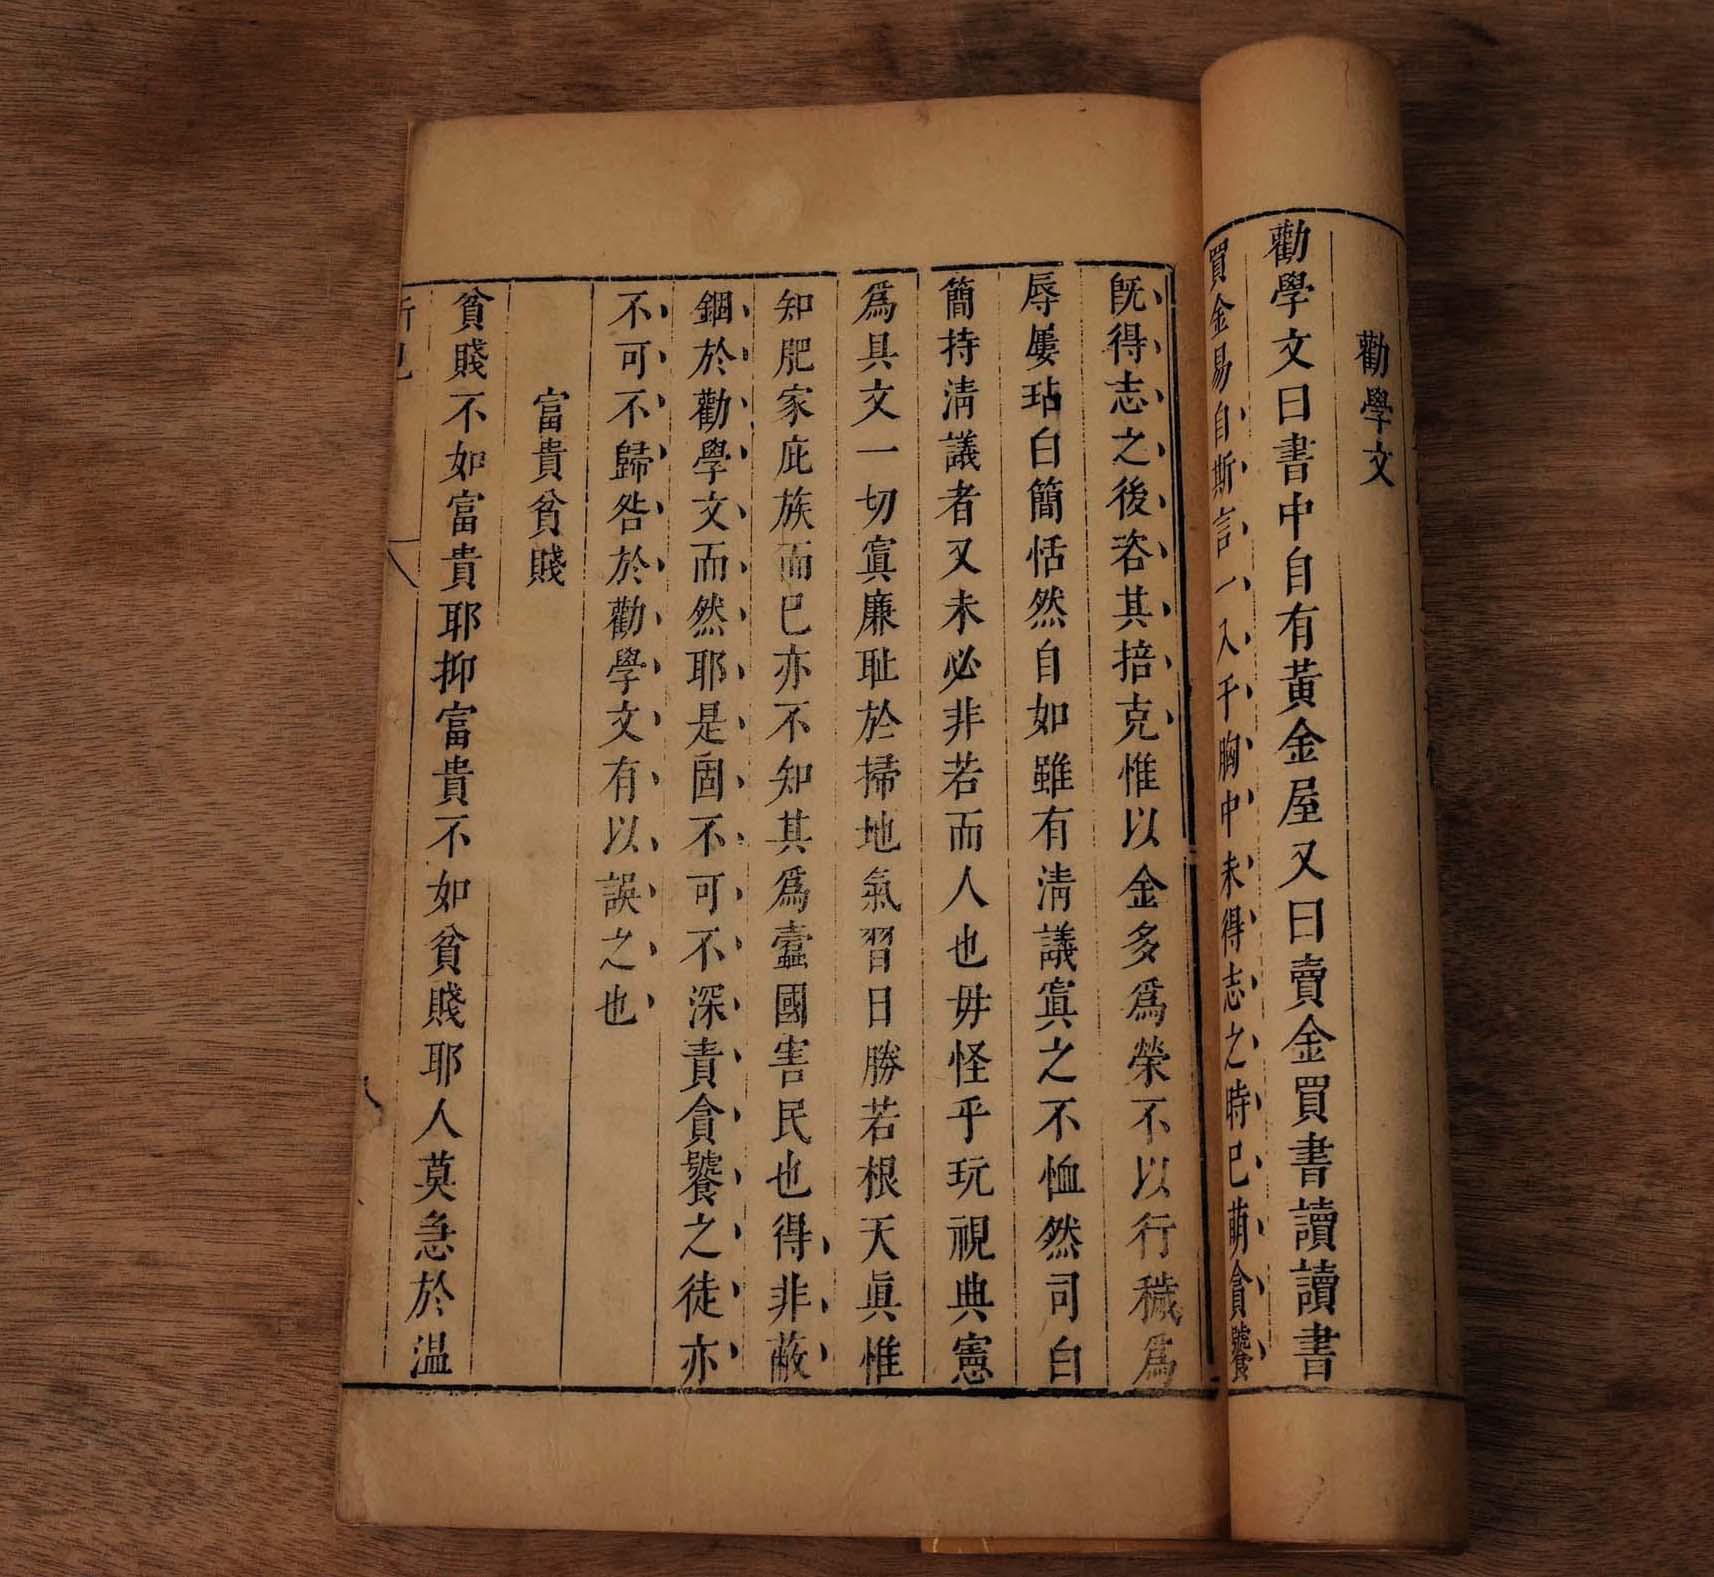 勸學文
勸學文曰書中自有黃金屋又曰賣金買書讀讀書
買金易自斯言一入于胸中未得志之時已萌貪饕
旣得志之後恣其掊克惟以金多爲榮不以行穢爲
辱屢玷白簡恬然自如雖有淸議寘之不恤然司白
簡持淸議者又未必非若而人也毋怪乎玩視典憲
爲具文一切寘廉耻於掃地氣習日勝若根天眞惟
知肥家庇族而已亦不知其爲蠹國害民也得非蔽
錮於勸學文而然耶是固不可不深責貪饕之徒亦
不可不歸咎於勸學文有以誤之也
富貴貧賤
貧賤不如富貴耶抑富貴不如貧賤耶人莫急於温